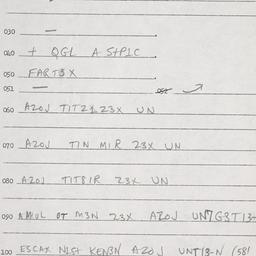 030 —
040 + QGL A StPIC
050 FARTBX
051 —
060 AZOJ TITZ1 23X UN
070 AZOJ TIN MIR 23X UN
080 AZOJ TITBIR 23X UN
090 OT M3N 23X AZOJ
100 ESCAX NIST KEN3N AZOJ (581